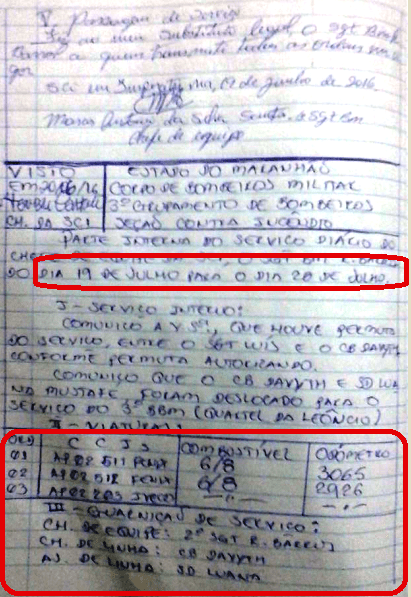 V. Passagem de Serviço
Fiz ao meu substituto legal, o Sgt
a quem transmite todas as ordens em vi
gor
SCI em Imperatriz-Ma, 19 de Junho de 2016.
Marcos Antonio da Silva 2º Sgt Bm
Chefe de equipe
VISTO ESTADO DO MARANHÃO
EM CORPO DE BOMBEIROS MILITAR
3º GRUPAMENTO DE BOMBEIROS
CH. DA SCI SEÇÃO CONTRA INCÊNDIO
PARTE INTERNA DO SERVIÇO DIÁRIO DO
CHEFE DE EQUIPE DA SCI, O SGT BM R. BARROS
DO DIA 19 DE JULHO PARA O DIA 20 DE JULHO.
I - SERVIÇO INTERNO:
COMUNICO A V.Sª, QUE HOUVE PERMUTA
DO SERVIÇO, ENTRE O SGT LUÍS E O CB DAVYTH
CONFORME PERMUTA AUTORIZANDO.
COMUNICO QUE O CB DAVYTH E SD LUA
NA MUSTAFE, FORAM DESLOCADO PARA O
SERVIÇO DO 3º BBM (QUARTEL DA LEÔNCIO)
II - VIATURAS:
ORD C C I S COMBUSTÍVEL ODÔMETRO
01 AP 02 511 FENIX 6/8 3065
02 AP 02 512 FENIX 6/8 2926
03 AP 02 IVECO —.— —.—
III - GUARNIÇÃO DE SERVIÇO:
CH. DE EQUIPE: 2º SGT R. BARROS
CH. DE LINHA: CB DAVYTH
AJ. DE LINHA: SD LUANA